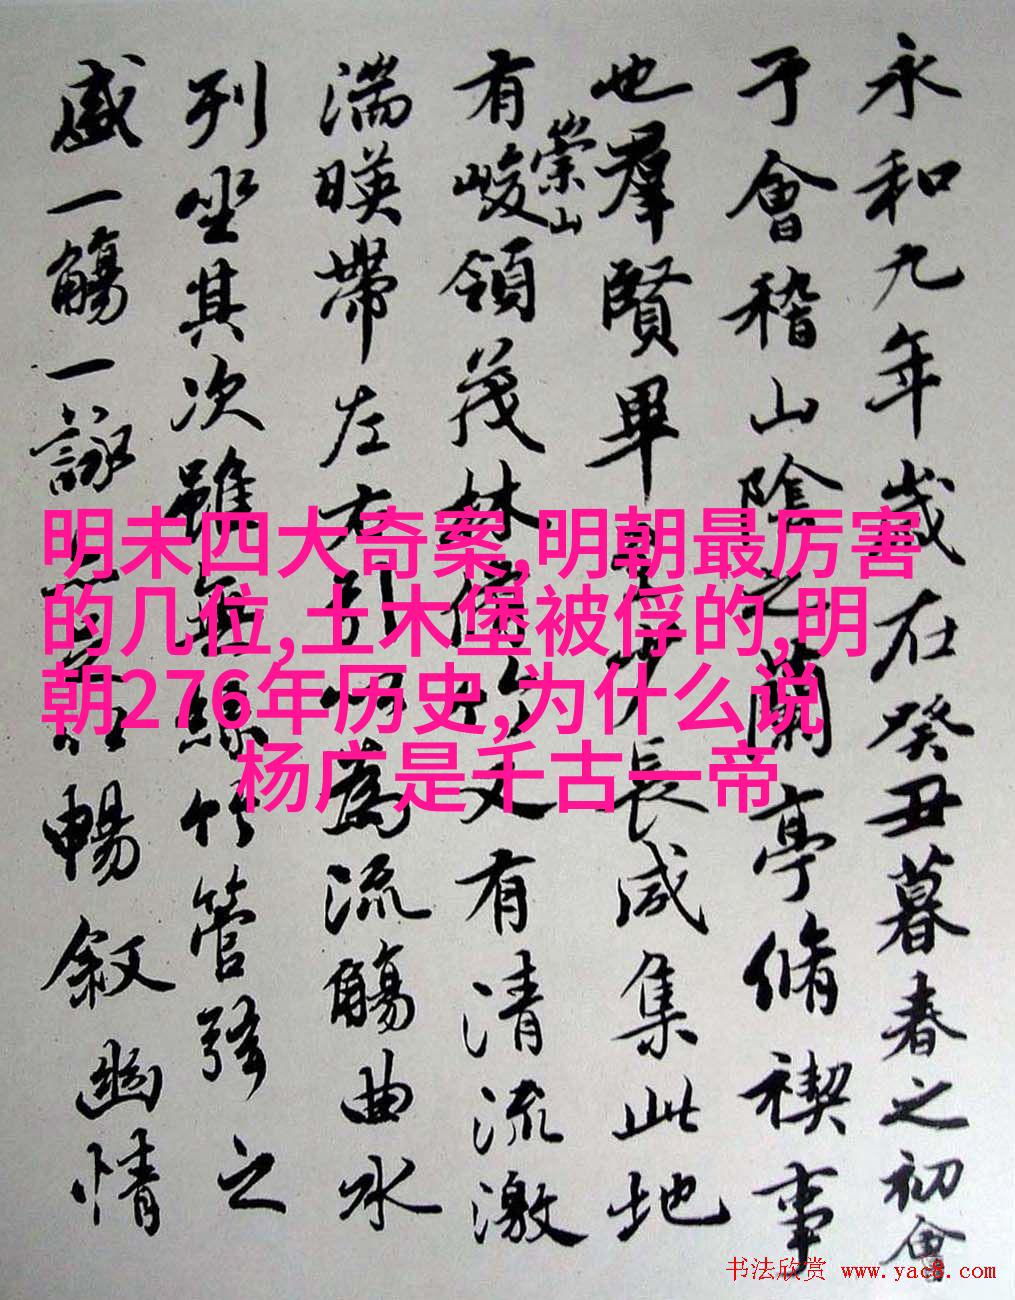 永和九年歲在癸丑暮春之初會
于會稽山陰之蘭亭脩禊事
也羣賢畢至少長咸集此地
有崇山峻領茂林脩竹又有清流激
湍暎帶左右引以為流觴曲水
列坐其次雖無絲竹管弦之
盛一觴一詠暢敘幽情
明未四大奇案,明朝最厉害
的几位,土木堡被俘的,明
朝276年历史,为什么说
杨广是千古一帝
书法欣赏 www.yac8.com